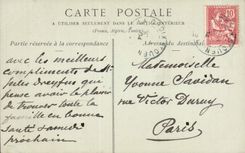 CARTE POSTALE
A UTILISER SEULEMENT DANS LE SERVICE INTÉRIEUR
(France, Algérie, Tunisie)
Partie réservée à la correspondance
avec les meilleurs
compliments de Mr
Jules Dreyfus qui
pense avoir le plaisir
de trouver toute la
famille en bonne
Santé Samedi
prochain
Mademoiselle
Yvonne Savidan
rue Victor Duruy
Paris